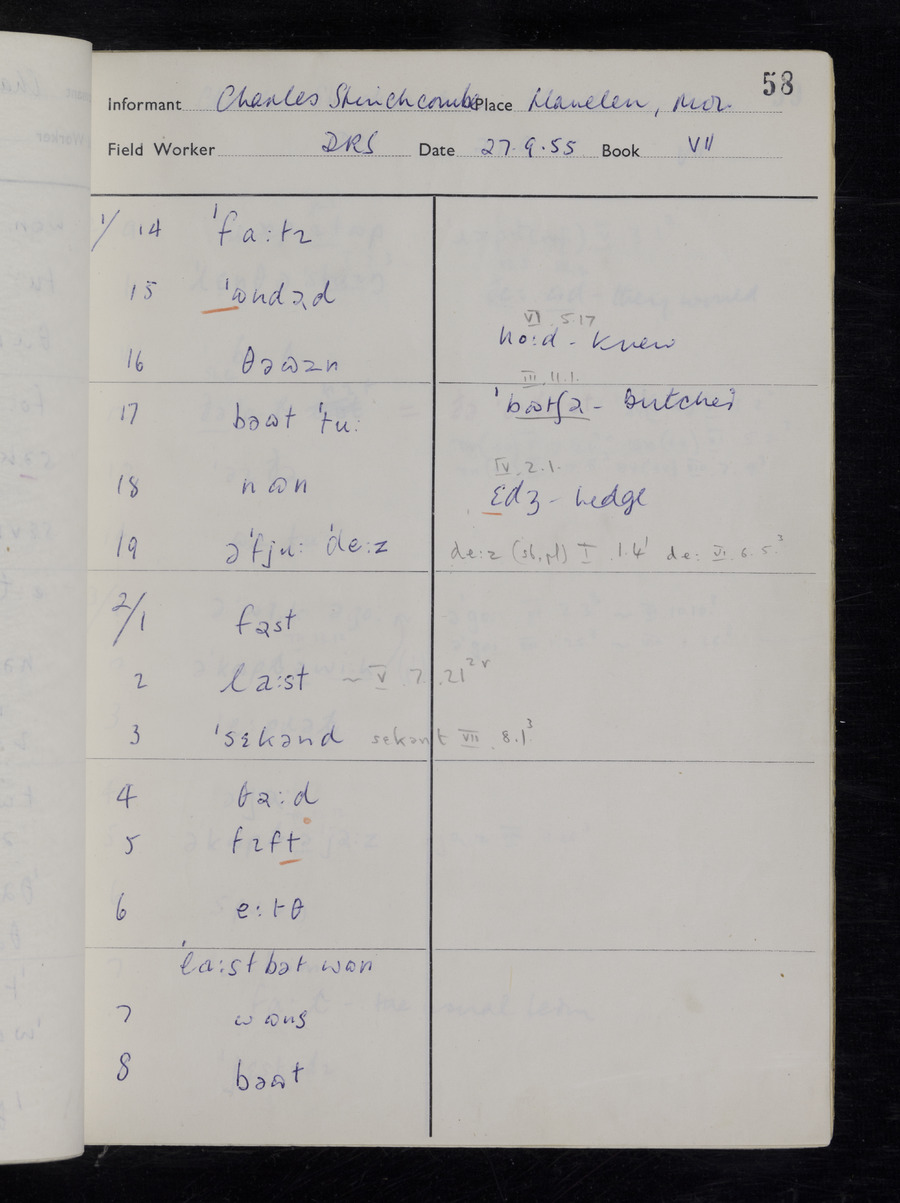 58
Informant Charles Stinchcombe Place Llanellen, Mon.
Field Worker DRS Date 27.9.55 Book VII
1/ 14 ˈfa:tɪ
15 ˈɷndɹəd
VI 5.17
no:d - knew
16 θəɷzn
III.11.1.
17 bəɷt ˈtu:
ˈbɷtʃə - butcher
IV.2.1.
18 nɷn
ɛdʒ - hedge
19 əˈfju: ˈde:z
de:z (sb, pl) I .1.4¹ de: VI. 6.5.³
2/1 fəst
2 la:st ~ V 7.21²ᵛ
3 ˈsɛkənd sekənt VII 8.1³
4 θə:d
5 fɪft
6 e:tθ
ˈla:st bət wɷn
7 wɷns
8 bəɷt